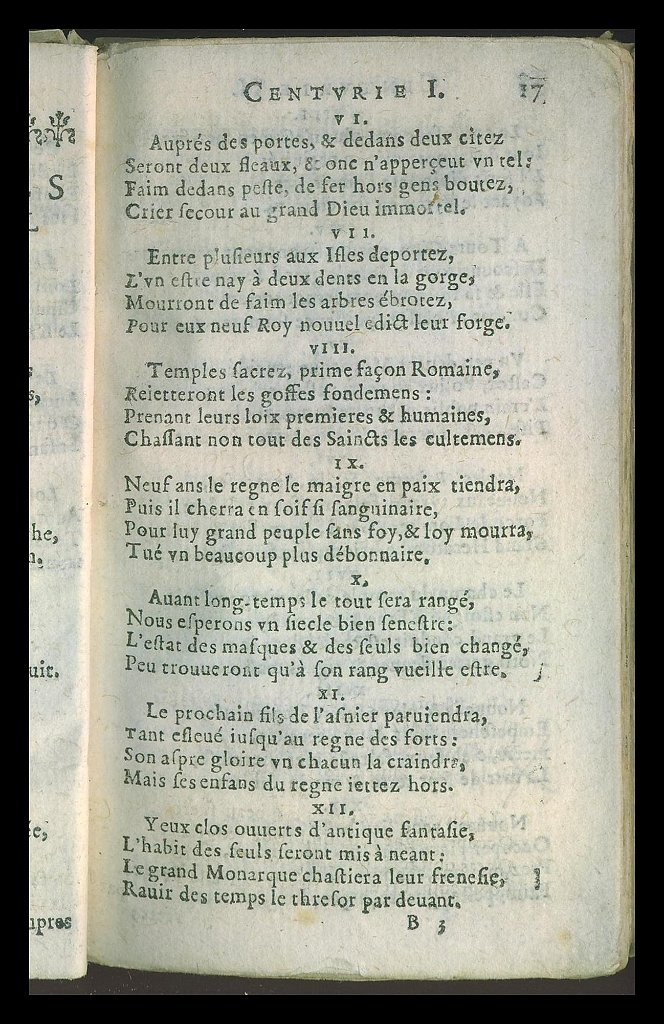 S
L
s,
he,
n,
uit.
ée,
upres
CENTVRIE I. 17
VI.
Auprés des portes, & dedans deux citez
Seront deux fleaux, & onc n'apperçeut vn tel:
Faim dedans peſte, de fer hors gens boutez,
Crier ſecour au grand Dieu immortel.
VII.
Entre pluſieurs aux Iſles deportez,
L'vn eſtre nay à deux dents en la gorge,
Mourront de faim les arbres ébrotez,
Pour eux neuf Roy nouuel edict leur forge.
VIII.
Temples ſacrez, prime façon Romaine,
Reietteront les goffes fondemens:
Prenant leurs loix premieres & humaines,
Chaſſant non tout des Saincts les cultemens.
IX.
Neuf ans le regne le maigre en paix tiendra,
Puis il cherra en ſoif ſi ſanguinaire,
Pour luy grand peuple ſans foy, & loy mourra,
Tué vn beaucoup plus débonnaire.
X.
Auant long-temps le tout ſera rangé,
Nous eſperons vn ſiecle bien ſeneſtre:
L'eſtat des maſques & des ſeuls bien changé,
Peu trouueront qu'à ſon rang vueille eſtre.
XI.
Le prochain fils de l'aſnier paruiendra,
Tant eſleué iuſqu'au regne des forts:
Son aſpre gloire vn chacun la craindra,
Mais ſes enfans du regne iettez hors.
XII.
Yeux clos ouuerts d'antique fantaſie,
L'habit des ſeuls ſeront mis à neant:
Le grand Monarque chaſtiera leur freneſie,
Rauir des temps le threſor par deuant.
B 3